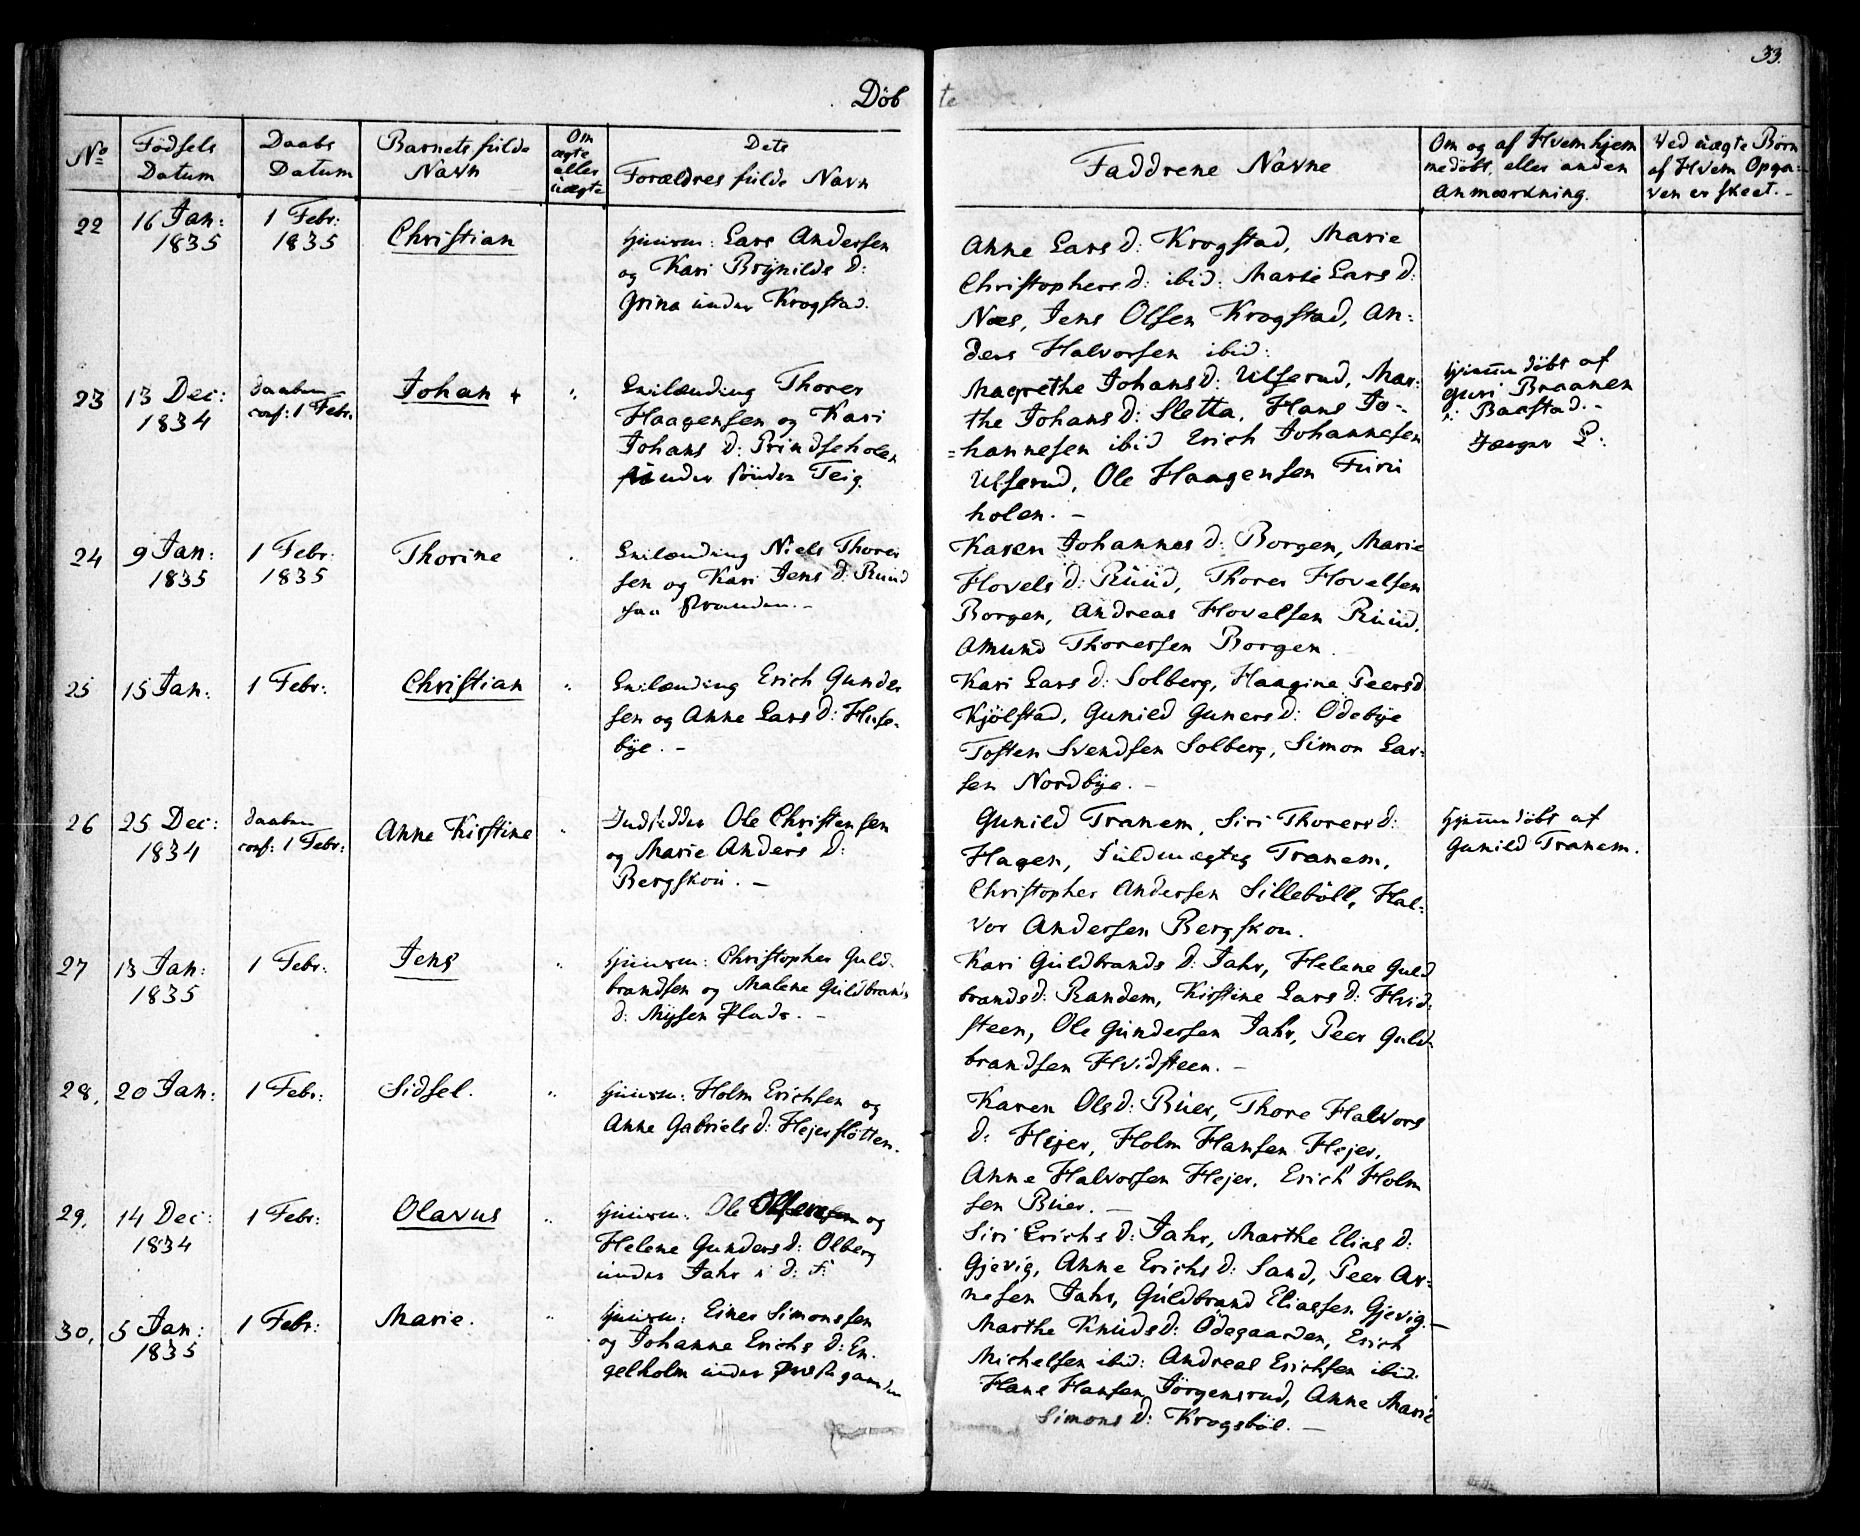 33.
Døbte
No
Födsels Datum
Daabs Datum
Barnets fulde Navn
Om ægte eller uægte
Dets Forældres fulde Navn
Faddrene Navne
Om og af Hvem hjem
medöbt, eller anden
Anmærkning.
Ved uægte Börn
af Hvem Opga-
ven er skeet. -
22
16 Jan:
1835
1 Febr:
1835
Christian
Huusm: Lars Andersen
og Kari Brynilds d:
Grina under Krogstad.
Anne Lars d: Krogstad, Marie
Christophers d: ibid: Marie Lars d:
Næs, Jens Olsen Krogstad, An:
ders Halvorsen ibid:
23
13 Dec:
1834
Daaben
conf: 1 Febr:
Johan +
"
Inilænding Thorer
Haagensen og Kari
Johans d: Prindseholen
under söndre Teig
Magrethe Johans d: Ulserud, Mar-
the Johans d: Sletta, Hans Jo-
=hannesen ibid Erich Johannesen
Ulserud, Ole Haagensen Furu
holen. -
Hjemmedöbt af
Guri Braanen
i Baastad. -
24
9 Jan:
1835
1 Febr:
1835
Thorine
"
Inilænding Niels Thorer
sen og Kari Jens d: Ruud
paa Stranden. -
Karen Johannes d: Borgen, Marie
Hovels d: Ruud, Thorer Hovelsen
Borgen, Andreas Hovelsen Ruud,
Amund Thorersen Borgen.
25
15 Jan:
1 Febr:
Christian
"
Inilænding Erich Gunder
sen og Anne Lars d: Huse-
bye. -
Kari Lars d: Solberg, Haagine Peersd
Kjölstad, Gunild Guners d: Odebye
Tosten Svendsen Solberg, Simon Lar-
sen Nordbye. -
26
25 Dec:
1834
Daaben
conf: 1 Febr:
Anne Kirstine
"
Indsidder Ole Christensen
og Marie Anders d:
Bergskou. -
Gunild Tranem, Siri Thorers d:
Hagen, Fuldmægtig Tranem,
Christopher Andersen Silleböll, Hal-
vor Andersen Bergskou.
Hjemmedöbt af
Gunild Tranem.
27
13 Jan:
1835
1 Febr:
Jens
"
Huusm: Christopher Guld-
brandsen og Malene Guldbrands
d: Mysen Plads. -
Kari Guldbrands d: Jahr, Helene Guld
brands d: Randem, Kirstine Lars d: Hvid-
steen, Ole Gundersen Jahr, Peer Guld-
brandsen Hvidsteen. -
28.
20 Jan:
1 Febr:
Sidsel.
"
Huusm: Holm Erichsen og
Anne Gabriels d: Hejerslötten.
Karen Ols d: Buer, Thore Halvors
d: Hejer, Holm Hansen Hejer,
Anne Halvorsen Hejer, Erich Holm
sen Buer. -
29.
14 Dec:
1834
1 Febr:
Olavus
"
Huusm: Ole og
Helene Gunders d: Olberg
under Jahr i d: F:
Siri Erichs d: Jahr, Marthe Elias d:
Gjevig, Anne Erichs d: Sand, Peer Ar-
nesen Jahr, Guldbrand Eliassen Gjevig. -
30.
5 Jan:
1835
1 Febr:
Marie.
"
Huusm: Einer Simonsen
og Johanne Erichs d: En-
gelholm under
Marthe Knuds d: Ödegaarden, Erich
Michelsen ibid: Andreas Erichsen ibid.
Hans Hansen Jörgensrud, Anne Marie
Simons d: Krogsböl. -